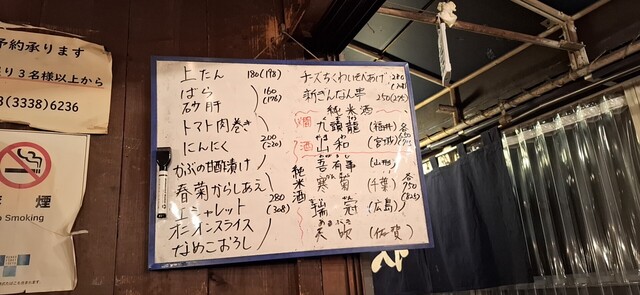 予約承ります
り3名様以上から
3(3338)6236
Smoking
煙
上たん 180(198)
ばら
砂肝
160
(176)
トマト肉巻き
にんにく
200
(220)
かぶの甘酢漬け
春菊からしあえ
エシャレット
280
(308)
オニオンスライス
なめこおろし
チーズちくわいそべあげ 280
新ぎんなん串 250(275)
純米酒
九頭龍 (福井) 各
山和 (宮城)
吾有事 (山形)
純米酒
寒菊 (千葉) 各
750
(825)
瑞冠 (広島)
天吹 (佐賀)